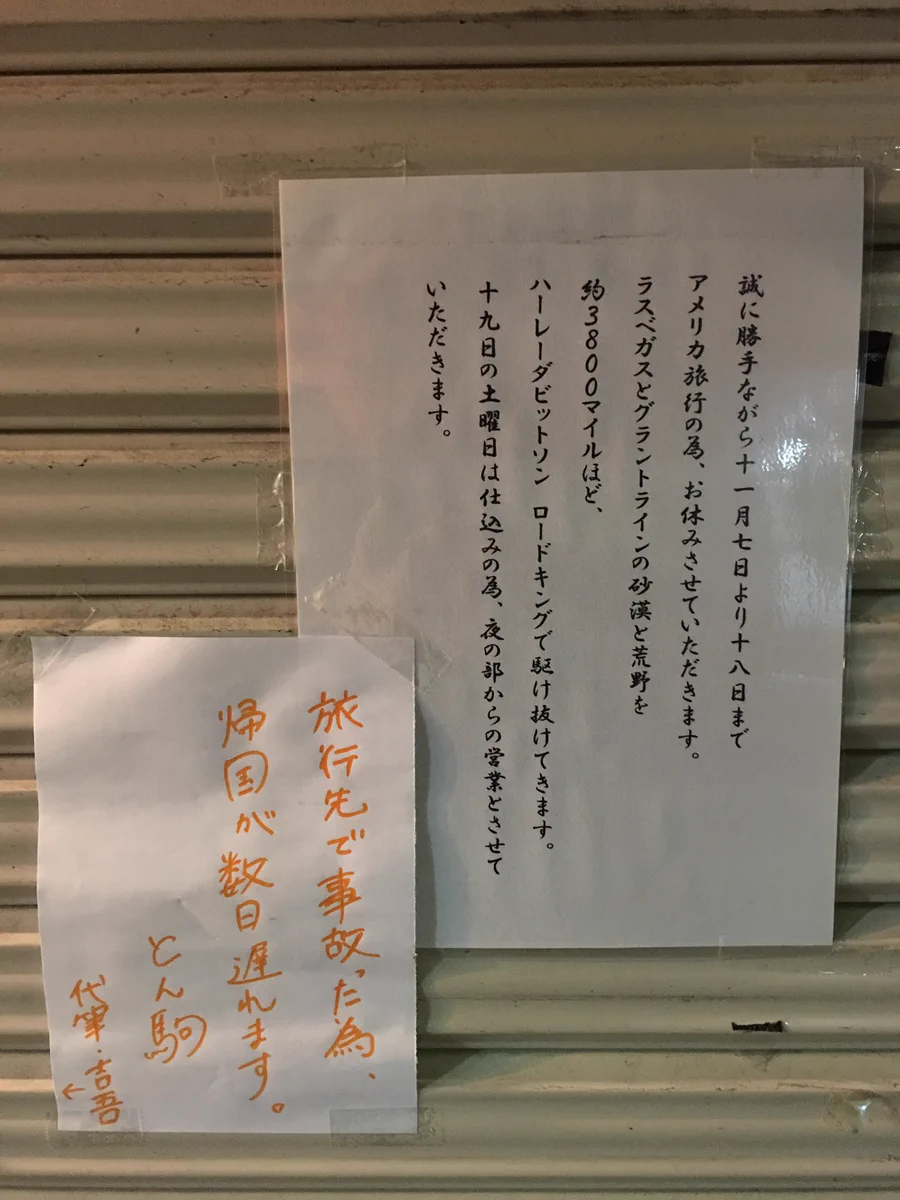 誠に勝手ながら十一月七日より十八日まで
アメリカ旅行の為、お休みさせていただきます。
ラスベガスとグラントラインの砂漠と荒野を
約3800マイルほど、
ハーレーダビットソン ロードキングで駆け抜けてきます。
十九日の土曜日は仕込みの為、夜の部からの営業とさせて
いただきます。
旅行先で事故った為、
帰国が数日遅れます。
とん駒
代筆・吉吾
←